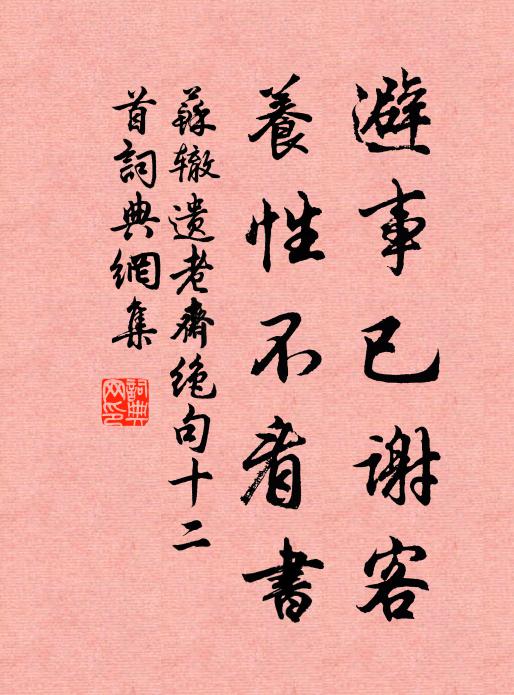 避事已謝客
養性不看書
蘇辙遗老齋绝句十二
首詞典網集
詞典
网印